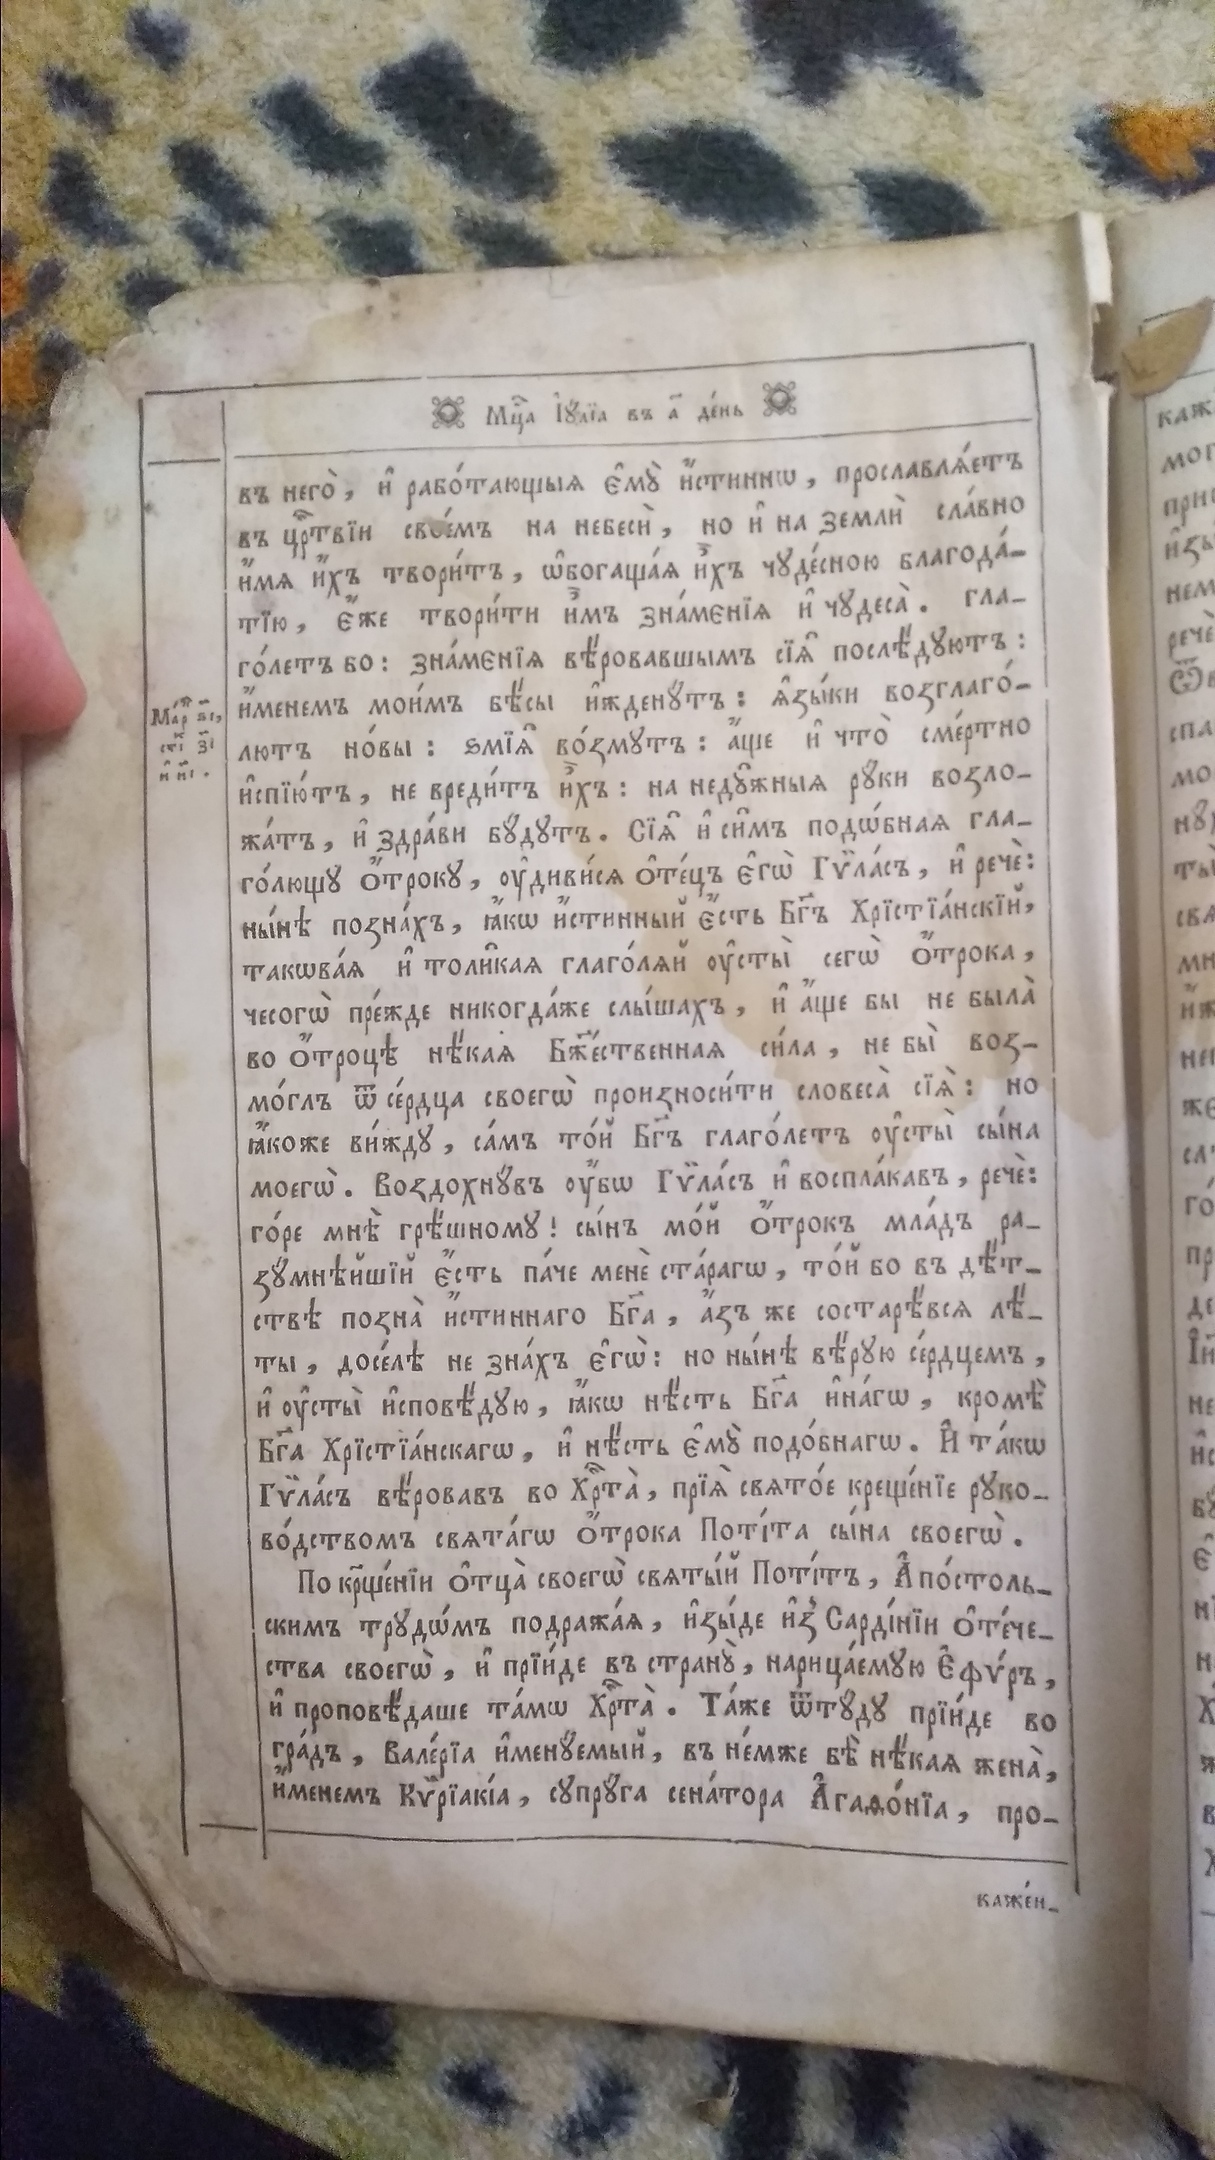 Мцⷭ҇а І҆ꙋ́лїа въ а҃ де́нь
въ него̀, и҆ рабо́тающыя є҆мꙋ̀ и҆́стиннѡ, прославлѧ́етъ
въ црⷭ҇твїи свое́мъ на небесѝ, но и҆ на землѝ сла́вно
и҆́мѧ и҆́хъ твори́тъ, ѡ҆богаща́ѧ и҆̀хъ чꙋде́сною благода́-
тїю, є҆́же твори́ти и҆̀мъ зна́мєнїѧ и҆ чꙋдеса̀. гла-
го́летъ бо: зна́мєнїѧ вѣ́ровавшымъ сїѧ̑ послѣ́дꙋютъ:
и҆́менемъ мои́мъ бѣ́сы и҆жденꙋ́тъ: ѧ҆зы́ки возглаго́-
лютъ но́вы: ѕмїѧ̑ во́змꙋтъ: а҆́ще и҆ что̀ сме́ртно
и҆спїю́тъ, не вреди́тъ и҆̀хъ: на недꙋ̑жныѧ рꙋ́ки возло-
жа́тъ, и҆ здра́ви бꙋ́дꙋтъ. Сїѧ̑ и҆ си̑мъ подѡ́бнаѧ гла-
го́лющꙋ ѻ҆́трокꙋ, ᲂу҆диви́сѧ ѻ҆те́цъ є҆гѡ̀ Гѷла́съ, и҆ речѐ:
ны́нѣ позна́хъ, ꙗ҆́кѡ и҆́стинный є҆́сть Бг҃ъ Хрїстїа́нскїй,
такѡва́ѧ и҆ толи̑каѧ глаго́лѧй ᲂу҆сты̀ сегѡ̀ ѻ҆́трока,
чесогѡ̀ пре́жде никогда́же слы́шахъ, и҆ а҆́ще бы не была̀
во ѻ҆́троцѣ нѣ́каѧ Бж҃е́ственнаѧ си́ла, не бы̀ воз-
мо́глъ ѿ се́рдца своегѡ̀ произноси́ти словеса̀ сїѧ̑: но
ꙗ҆́коже ви́ждꙋ, са́мъ то́й Бг҃ъ глаго́летъ ᲂу҆сты̀ сы́на
моегѡ̀. Воздохнꙋ́въ ᲂу҆́бѡ Гѷла́съ и҆ воспла́кавъ, речѐ:
го́ре мнѣ̀ грѣ́шномꙋ! сы́нъ мо́й ѻ҆́трокъ мла́дъ ра-
зꙋмнѣ́йшїй є҆́сть па́че менѐ ста́рагѡ, то́й бо въ дѣ́т-
ствѣ позна̀ и҆́стиннаго Бг҃а, а҆́зъ же состарѣ́всѧ лѣ́-
ты, досе́лѣ не зна́хъ є҆гѡ̀: но ны́нѣ вѣ́рꙋю се́рдцемъ,
и҆ ᲂу҆сты̀ и҆сповѣ́дꙋю, ꙗ҆́кѡ нѣ́сть Бг҃а и҆на́гѡ, кромѣ̀
Бг҃а Хрїстїа́нскагѡ, и҆ нѣ́сть є҆мꙋ̀ подо́бнагѡ. И҆ та́кѡ
Гѷла́съ вѣ́ровавъ во Хрⷭ҇та̀, прїѧ̀ свято́е креще́нїе рꙋко-
во́дствомъ свѧта́гѡ ѻ҆́трока Поті́та сы́на своегѡ̀.
По крⷳ҇ще́нїи ѻ҆тца̀ своегѡ̀ свѧты́й Поті́тъ, А҆по́столь-
скимъ трꙋдѡ́мъ подража́ѧ, и҆зы́де и҆з̾ Сарді́нїи ѻ҆те́че-
ства своегѡ̀, и҆ прїи́де въ странꙋ̀, нарица́емꙋю Є҆фѵ́ръ,
и҆ проповѣ́даше та́мѡ Хрⷭ҇та̀. Та́же ѿтꙋ́дꙋ прїи́де во
гра́дъ, Вале́рїа и҆менꙋ́емый, въ не́мже бѣ̀ нѣ́каѧ жена̀,
и҆́менемъ Кѷрїакі́а, сꙋпрꙋ́га сена́тора А҆гаѳо́нїа, про-
каже́н-